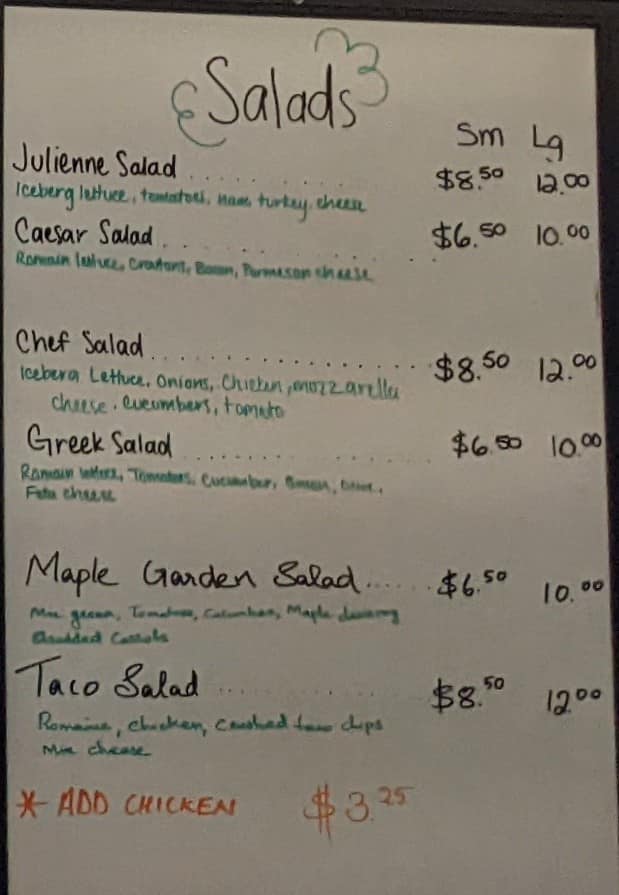 Salads
Sm Lg
Julienne Salad ........ $8.50 12.00
Iceberg lettuce, tomatoes, ham, turkey, cheese
Caesar Salad ........ $6.50 10.00
Romain lettuce, Croutons, Bacon, Parmesan cheese
Chef Salad ........ $8.50 12.00
Iceberg Lettuce, Onions, Chicken, mozzarella
cheese, Cucumbers, tomato
Greek Salad ........ $6.50 10.00
Romain lettuce, Tomatoes, Cucumber, Onion,
Feta cheese
Maple Garden Salad ...... $6.50 10.00
Mix green, Tomatoes, Cucumber, Maple
Shredded Carrots
Taco Salad ........ $8.50 12.00
Romaine, chicken, crushed taco chips
Mix cheese
* ADD CHICKEN $3.25